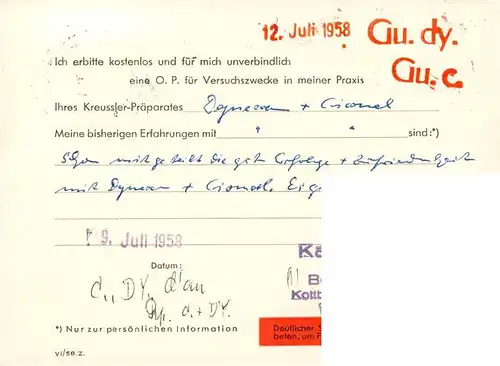 12. Juli 1958 Gu. dy.
Gu. c.
Ich erbitte kostenlos und für mich unverbindlich
eine O. P. für Versuchszwecke in meiner Praxis
Ihres Kreussler-Präparates Dynexan +
Meine bisherigen Erfahrungen mit " " sind:*)
Schon mitgeteilt die gute Erfolge + Zufriedenheit
mit Dynexan +
9. Juli 1958
Kä
Datum:
Kottb
C., DY,
c. + DY.
*) Nur zur persönlichen Information
Deutlicher S
beten, um F
VI/58.Z.